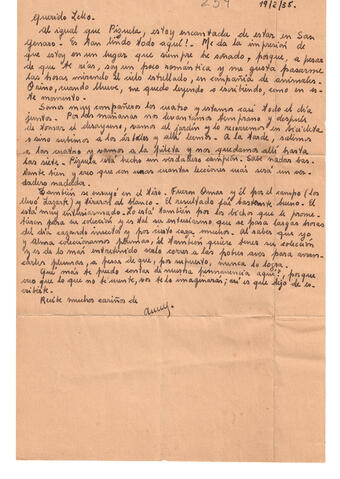 259
19/2/35.
Querido Lelio.
Al igual que Pizuela, estoy encantada de estar en San
Genaro. Es tan lindo todo aquí! Me da la impresión de
que estoy en un lugar que siempre he soñado, porque, a pesar
de que te rías, soy un poco romántica y me gusta pasarme
las horas mirando el cielo estrellado, en compañía de animales.
O sino, cuando llueve, me quedo leyendo o escribiendo, como en es-
te momento.
Somos muy compañeros los cuatro y estamos casi todo el día
juntos. Por las mañanas nos levantamos temprano y después
de tomar el desayuno, vamos al jardín y lo recorremos en bicicleta
o sino subimos a los árboles y allí leemos. A la tarde, salimos
a las cuatro y vamos a la pileta y nos quedamos allí hasta
las siete. Pizuela está hecho un verdadero campeón. Sabe nadar bas-
tante bien y creo que con unas cuantas lecciones más será un ver-
dadero nadador.
También se ensayó en el tiro. Fueron Omar y él por el campo (los
llevó Zagart) y tiraron al blanco. El resultado fué bastante bueno. El
está muy entusiasmado. Lo está también por los bichos que le prome-
tieron para su colección y es tal su entusiasmo que se pasa largas horas
del día cazando insectos y por cierto caza muchos. Al saber que yo
y Alma coleccionamos plumas, él también quiere tener su colección
y es de lo más entretenido verlo correr a las pobres aves para arran-
carles plumas, a pesar de que, por supuesto, nunca lo logra.
Qué más te puedo contar de nuestra permanencia aquí?, porque
creo que lo que no te cuento, vos te lo imaginarás; así es que dejo de es-
cribirte.
Recibe muchos cariños de